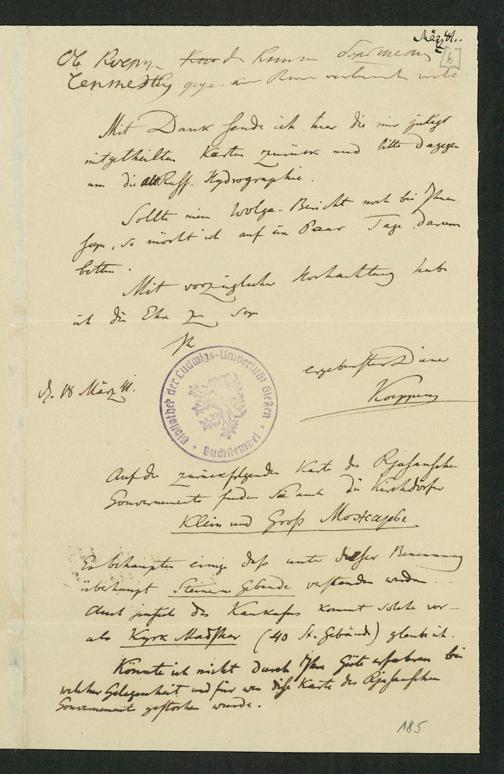 März 41.
6
Ob Koeppen
gegen
Mit Dank sende ich hier die mir gütigst
mitgetheilten Karten zurück und bitte dagegen
um die alte Russ. Hydrographie.
Sollte mein Wolga-Bericht noch bei Ihnen
seyn, so möcht ich auf ein Paar Tage darum
bitten.
Mit vorzüglicher Hochachtung habe
ich die Ehre zu seyn
Ihr
ergebenster Diener
Koeppen
d. 18 März 41.
Bibliothek der Ludwigs-Universität Gießen
Buchstempel
Auf der zurückfolgenden Karte des Rjasanschen
Gouvernements finden Sie auch die Kirchdörfer
Klein und Groß
Es behaupten einige daß unter dieser Benennung
überhaupt Steinerne Gebäude verstanden werden.
Auch jenseits des Kaukasus kommt solche vor
als Kyrk Madshar (40 St. Gebäude) glaub ich.
Könnte ich nicht durch Ihre Güte erfahren bei
welcher Gelegenheit und für wen diese Karte des Rjasanschen
Gouvernement gestochen wurde.
185